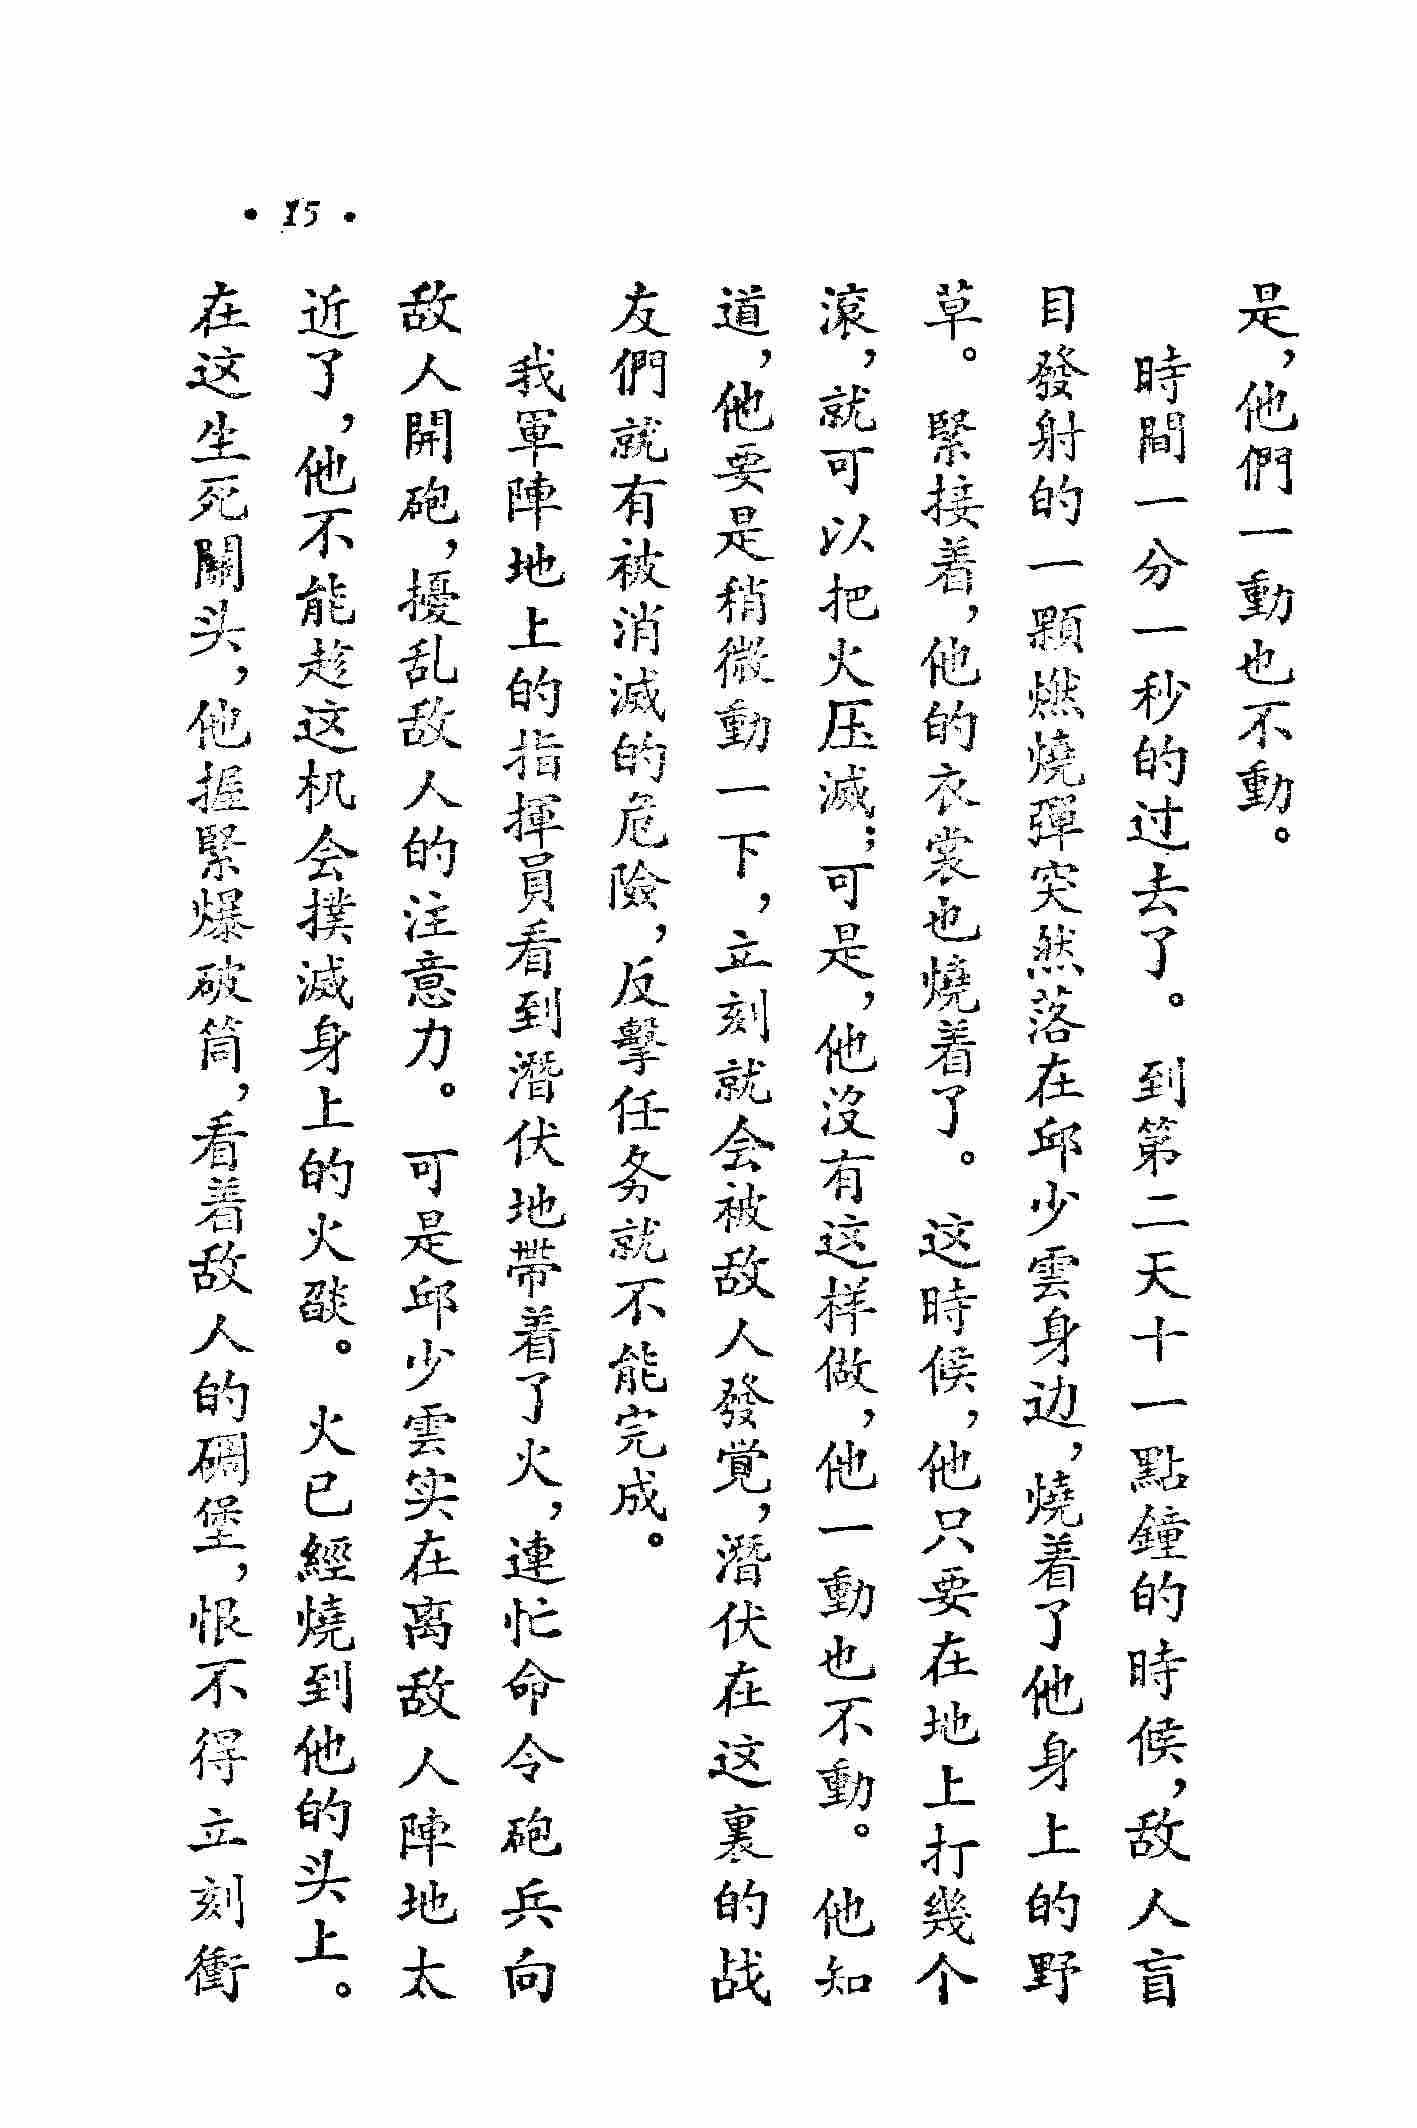 • 15 •
是，他們一動也不動。
時間一分一秒的过去了。到第二天十一點鐘的時候，敌人盲
目發射的一顆燃燒彈突然落在邱少雲身边，燒着了他身上的野
草。緊接着，他的衣裳也燒着了。这時候，他只要在地上打幾个
滾，就可以把火压滅；可是，他沒有这样做，他一動也不動。他知
道，他要是稍微動一下，立刻就会被敌人發覚，潛伏在这裏的战
友們就有被消滅的危險，反擊任务就不能完成。
我軍陣地上的指揮員看到潛伏地帶着了火，連忙命令砲兵向
敌人開砲，擾乱敌人的注意力。可是邱少雲实在离敌人陣地太
近了，他不能趁这机会撲滅身上的火燄。火已經燒到他的头上。
在这生死關头，他握緊爆破筒，看着敌人的碉堡，恨不得立刻衝